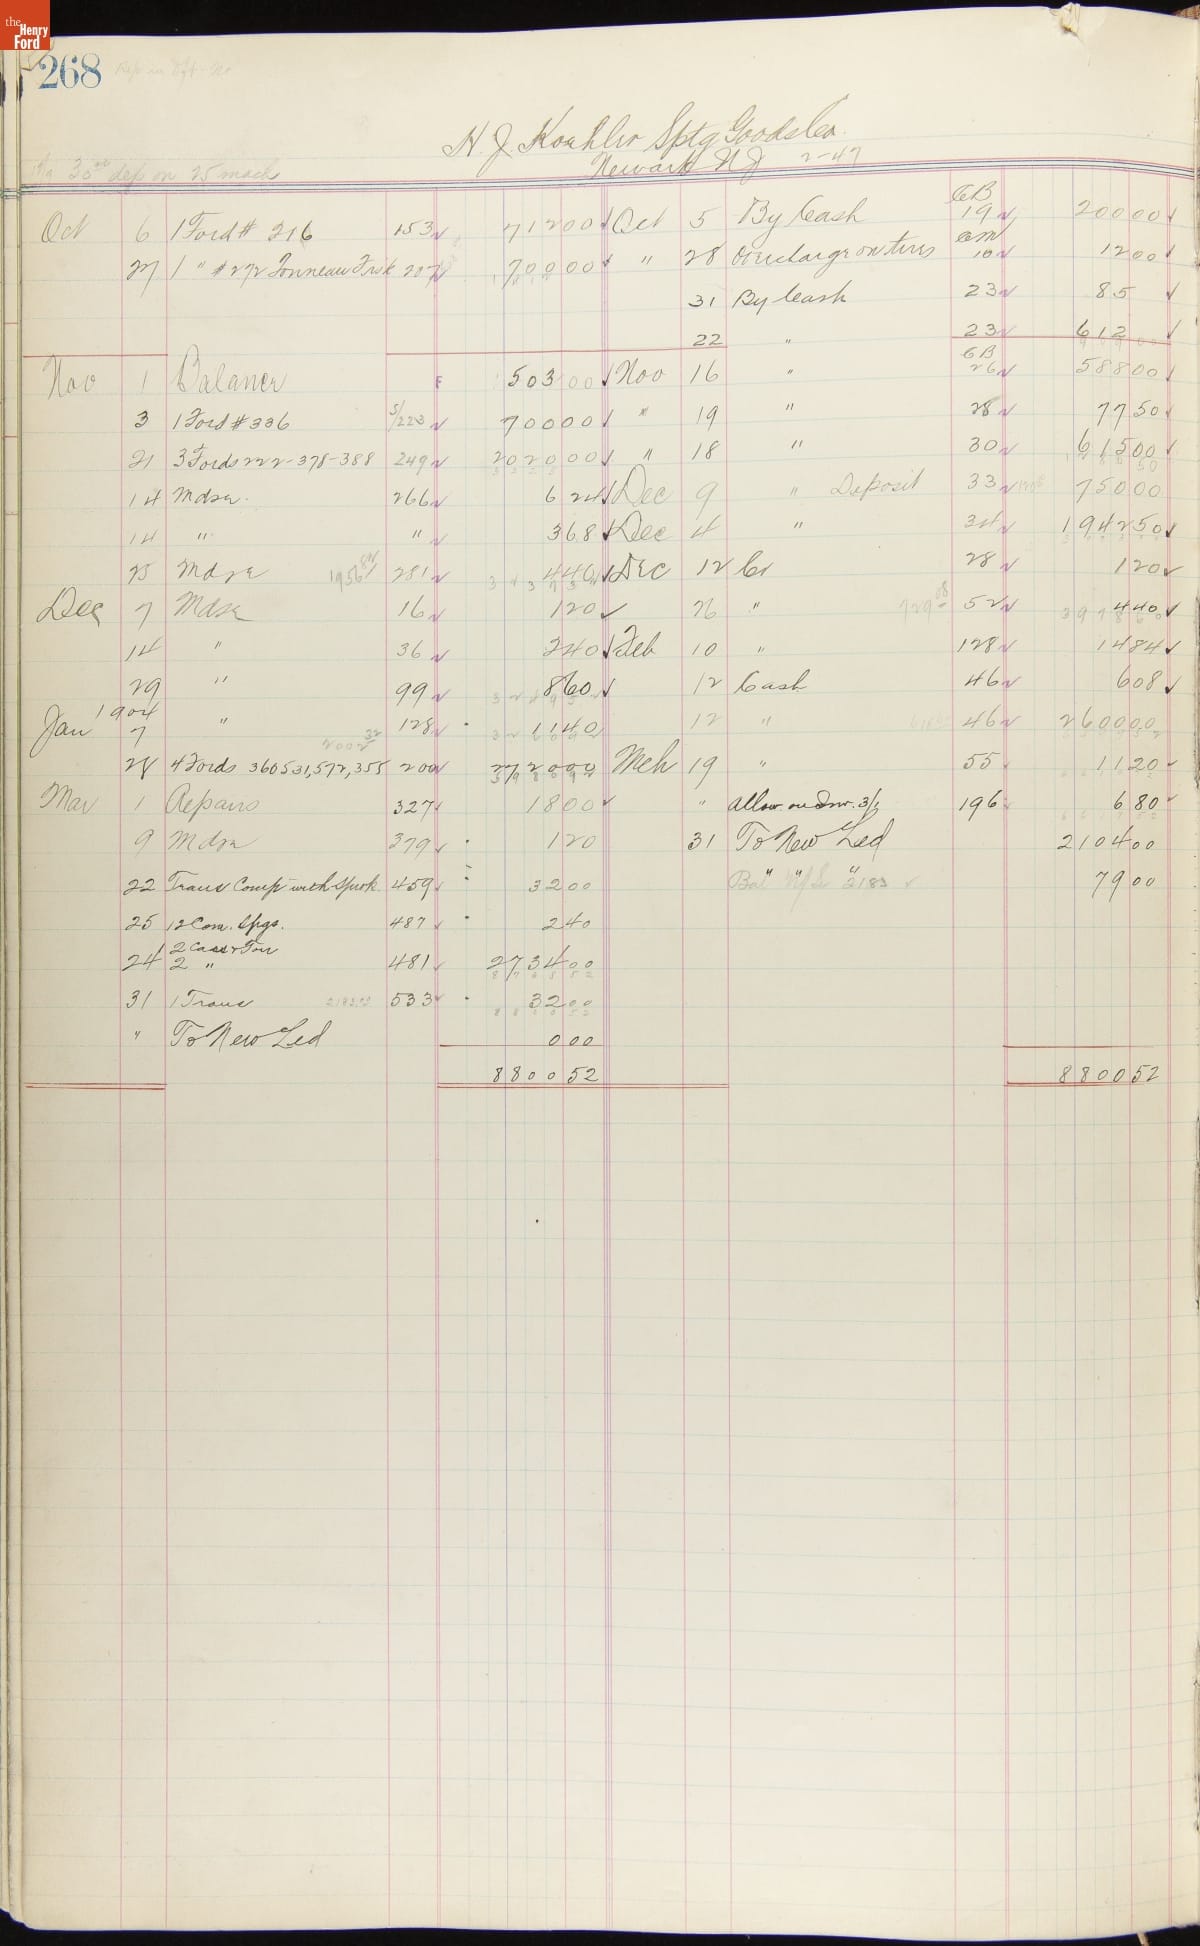 the Henry Ford
268
H. J. Koehler Sptg Goods Co.
Newark N J 2-47
30 dep on 25 mach
Oct 6 1 Ford # 216 153 712 00 Oct 5 By Cash CB 19 200 00
27 1 " # 272 Tonneau 207 700 00 " 28 Overcharge on tires 10 12 00
31 By Cash 23 85
22 " 23 612
Nov 1 Balance F 503 00 Nov 16 " CB 26 588 00
3 1 Ford # 336 S/223 700 00 " 19 " 28 77 50
21 3 Fords 222-378-388 249 2020 00 " 18 " 30 615 00
14 Mdse. 266 6 24 Dec 9 " Deposit 33 750 00
14 " " 3 68 Dec 4 " 34 1942 50
25 Mdse 281 4 40 Dec 12 Cr 28 1 20
Dec 7 Mdse 16 1 20 26 " 52 4 40
14 " 36 2 40 Feb 10 " 128 14 84
29 " 99 8 60 12 Cash 46 6 08
1904
Jan 7 " 128 11 40 12 " 46 2600 00
28 4 Fords 360 531, 572, 355 200 2720 00 Mch 19 " 55 11 20
Mar 1 Repairs 327 18 00 " Allow. on Inv. 3/3 196 6 80
9 Mdse 379 1 20 31 To New Led 2104 00
22 Trans Comp with Sprok. 459 32 00 Bal " " 2183 79 00
25 12 Com. Spgs. 487 2 40
2 Cars & Ton
24 2 " 481 2734 00
31 1 Trans 533 32 00
" To New Led 0 00
8800 52 8800 52